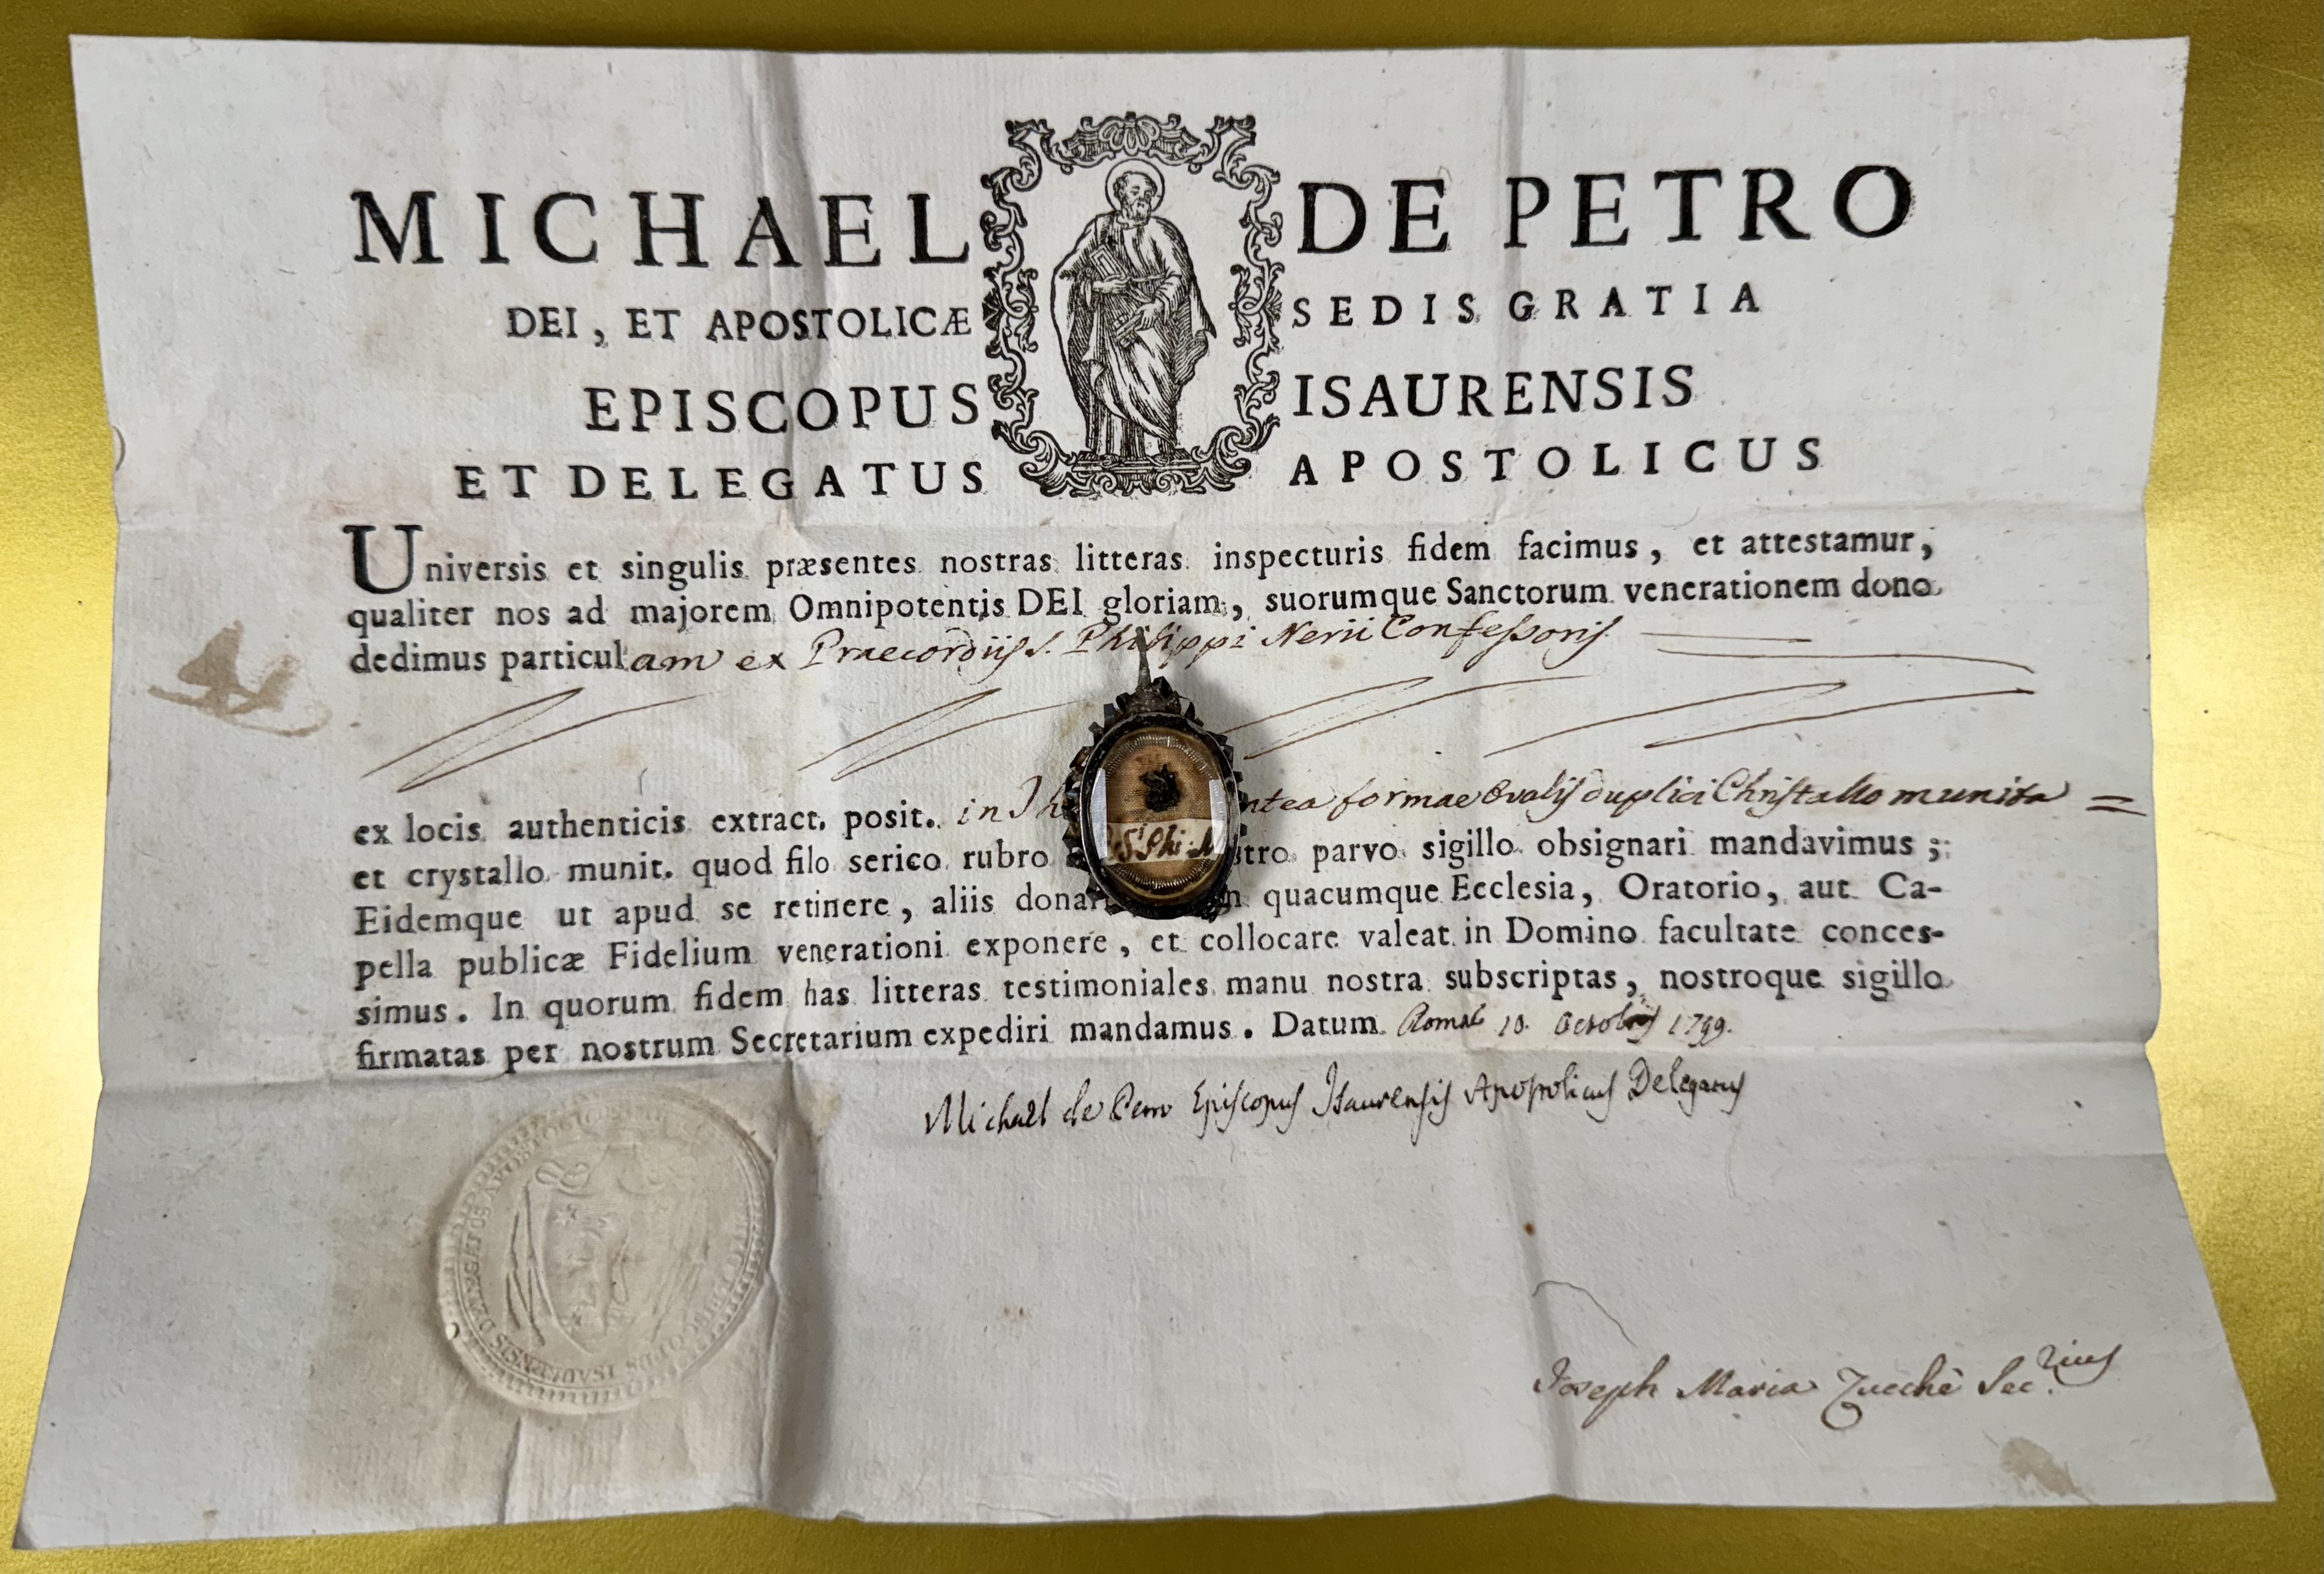 MICHAEL DE PETRO
DEI, ET APOSTOLICÆ SEDIS GRATIA
EPISCOPUS ISAURENSIS
ET DELEGATUS APOSTOLICUS
Universis et singulis præsentes nostras litteras inspecturis fidem facimus, et attestamur,
qualiter nos ad majorem Omnipotentis DEI gloriam, suorumque Sanctorum venerationem dono
dedimus particulam ex Praecordiis S. Philippi Nerii Confessoris
ex locis authenticis extract. posit. in formae Ovalis duplici Christallo munita =
et crystallo munit. quod filo serico rubro parvo sigillo obsignari mandavimus;
Eidemque ut apud se retinere, aliis quacumque Ecclesia, Oratorio, aut Ca-
pella publicæ Fidelium venerationi exponere, et collocare valeat in Domino facultate conces-
simus. In quorum fidem has litteras testimoniales manu nostra subscriptas, nostroque sigillo
firmatas per nostrum Secretarium expediri mandamus. Datum Romae 10. Octobris 1799.
S. Phi. N
Michael de Petro Episcopus Isaurensis Apostolicus Delegatus
Joseph Maria Secrius